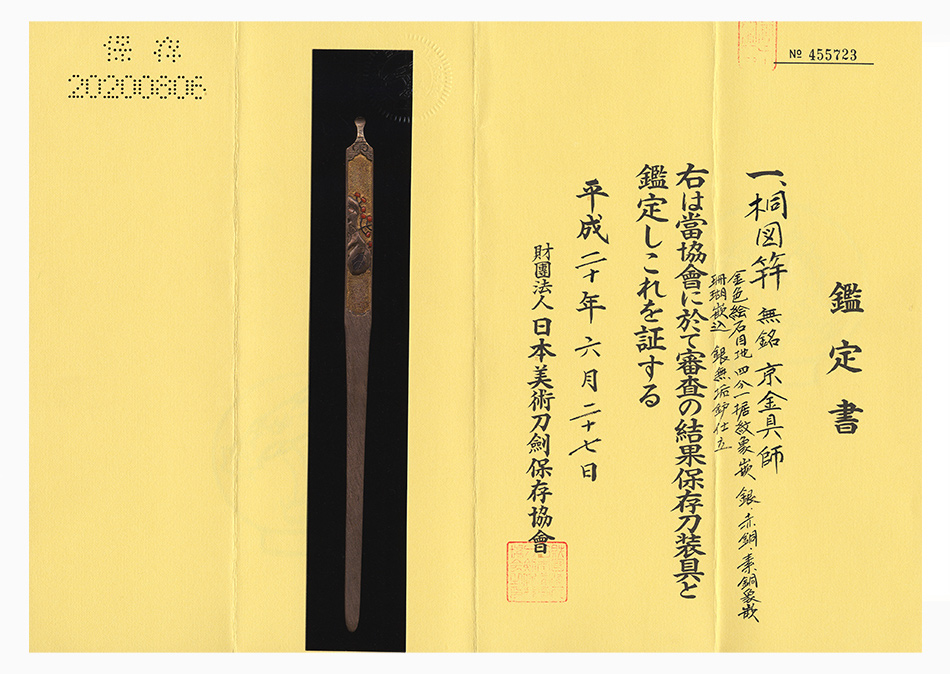 保存
20200806
№ 455723
鑑定書
一、桐図笄 無銘 京金具師
金色絵石目地 四分一据紋象嵌 銀・赤銅・素銅象嵌
珊瑚嵌込 銀無垢 仕立
右は當協會に於て審査の結果保存刀装具と
鑑定しこれを証する
平成二十年六月二十七日
財團法人 日本美術刀劍保存協會